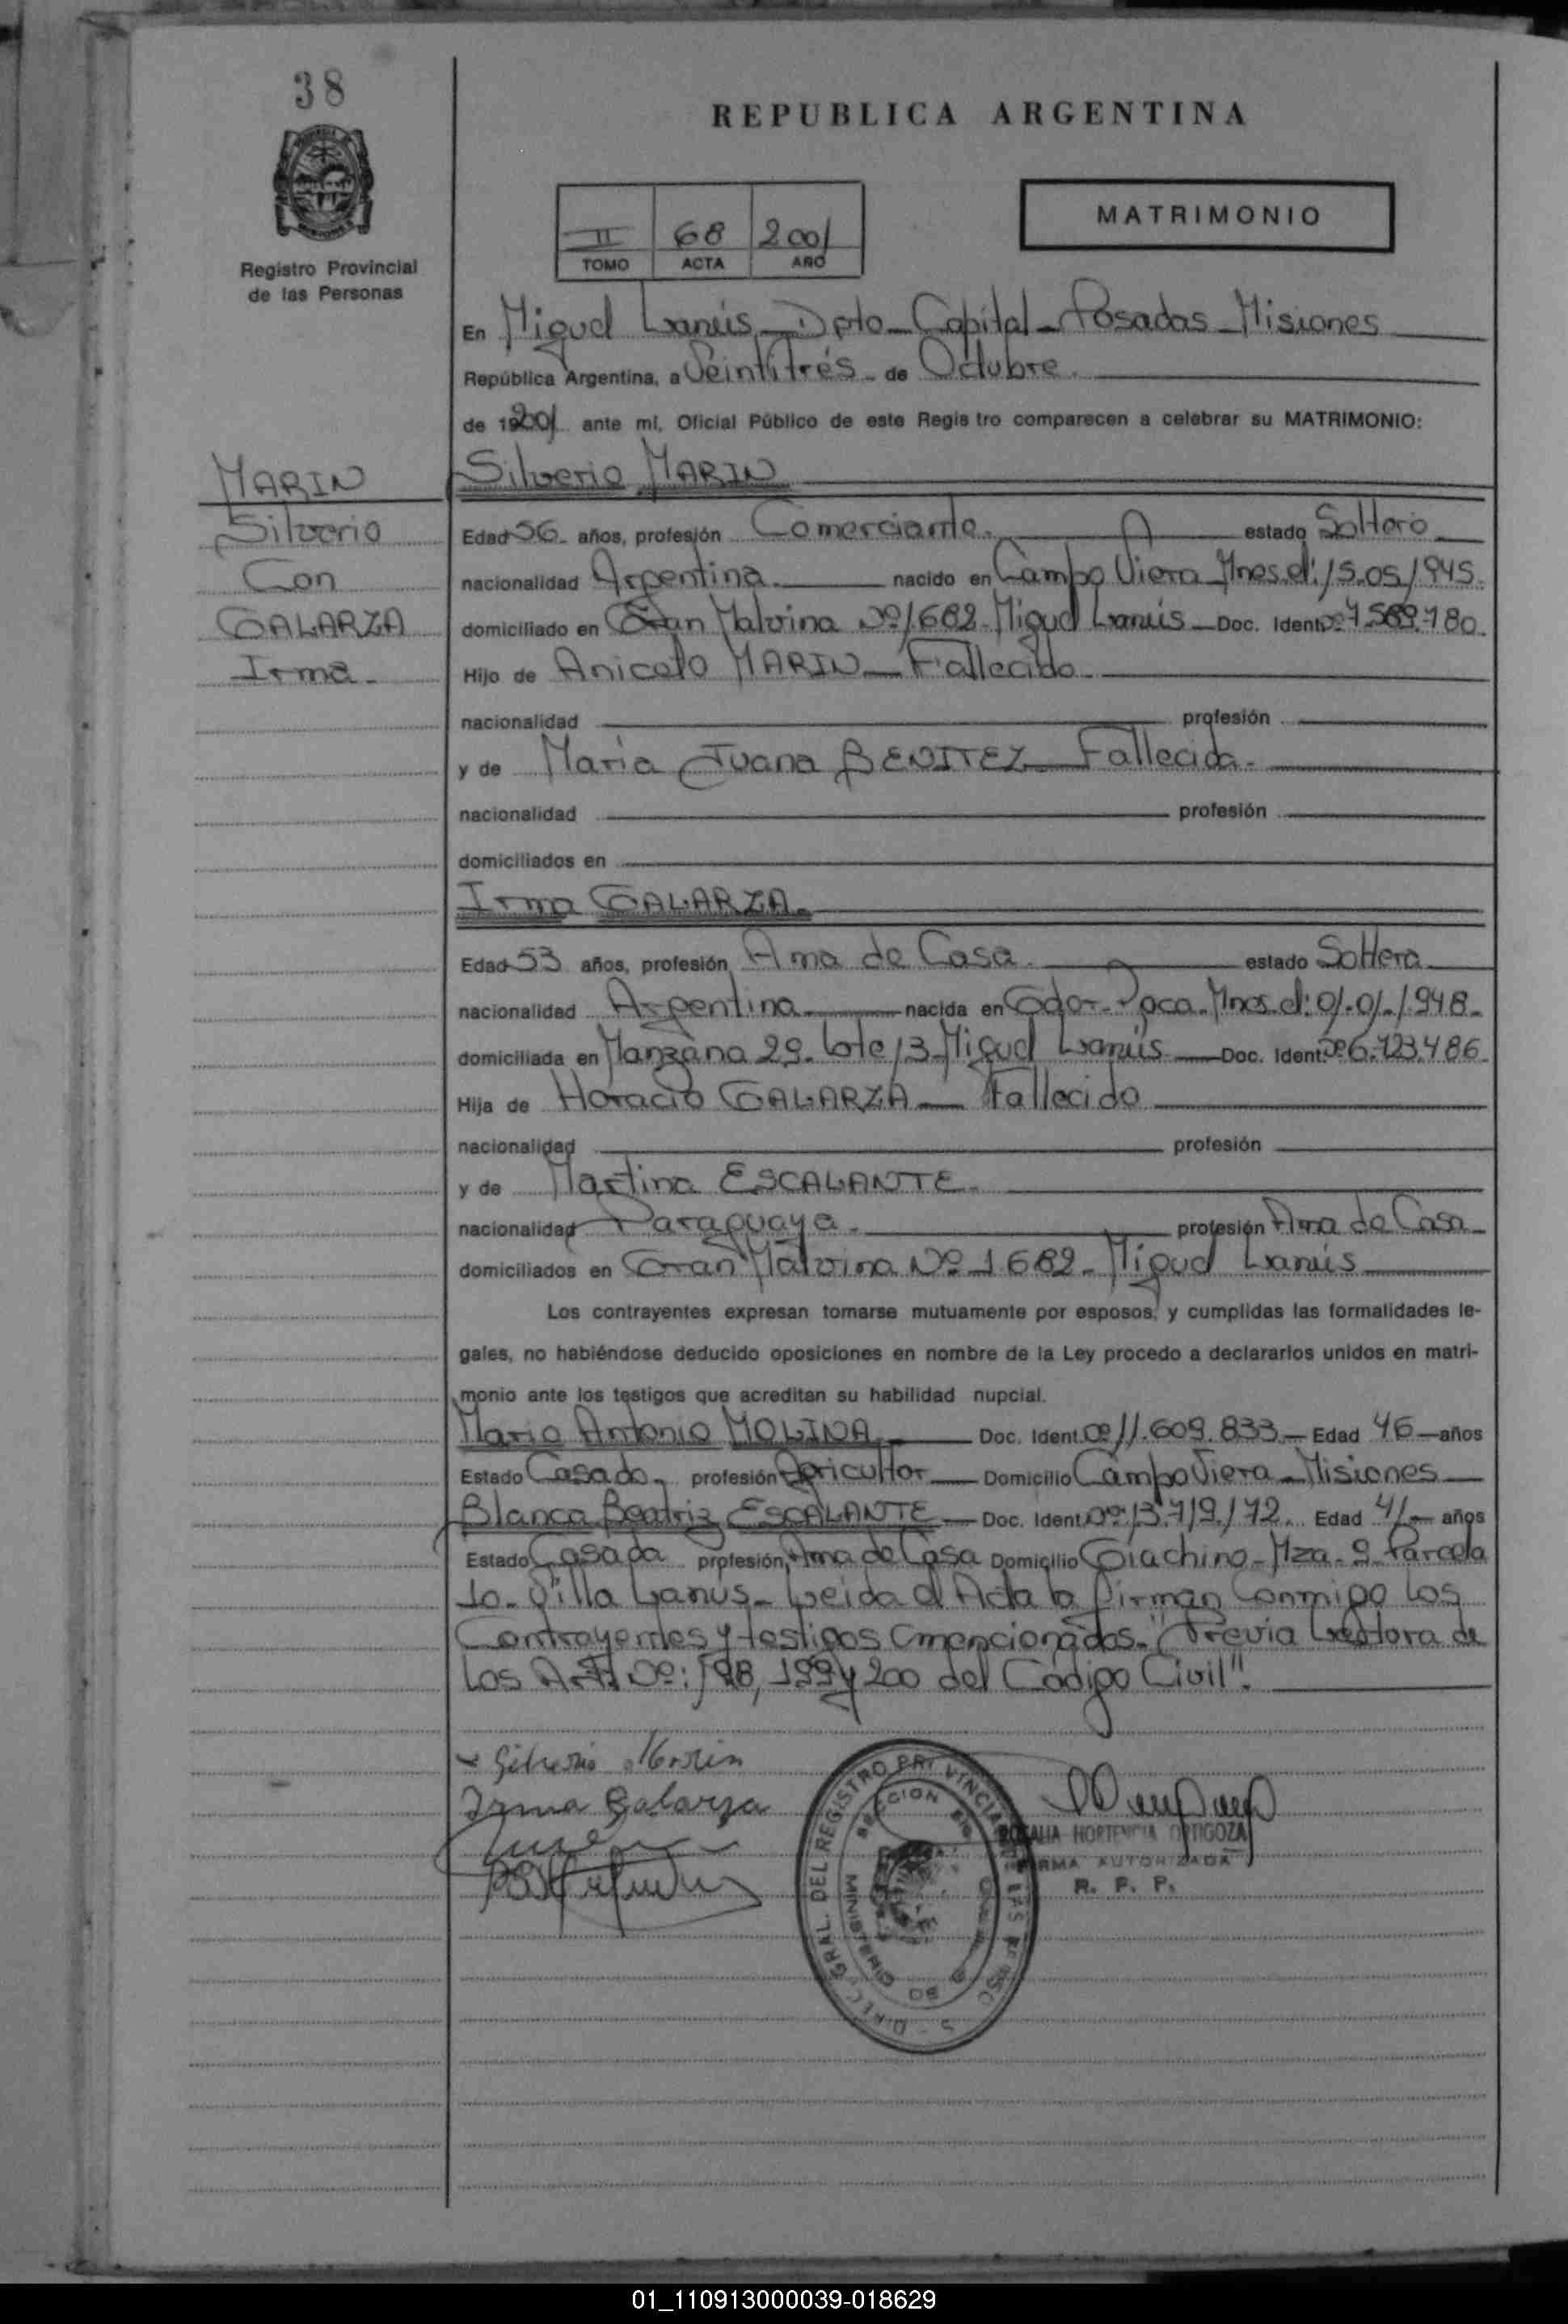 38
REPUBLICA ARGENTINA
MATRIMONIO
II 68 2001
TOMO ACTA AÑO
Registro Provincial
de las Personas
En Miguel Lanús - Dpto - Capital - Posadas - Misiones
República Argentina, a Veintitrés - de Octubre.
de 2001 ante mí, Oficial Público de este Registro comparecen a celebrar su MATRIMONIO:
MARIN
Silverio
Con
GALARZA
Irma -
Silverio MARIN
Edad 56 años, profesión Comerciante. estado Soltero
nacionalidad Argentina nacido en Campo Viera Mnes. el: 15.05.1945.
domiciliado en Gran Malvina Nº 1682 - Miguel Lanús - Doc. Ident. Nº 7.589.780.
Hijo de Aniceto MARIN - Fallecido
nacionalidad profesión
y de María Juana BENITEZ - Fallecida.
nacionalidad profesión
domiciliados en
Irma GALARZA.
Edad 53 años, profesión Ama de Casa. estado Soltera
nacionalidad Argentina nacida en Gdor. Roca. Mnes. el: 01.01.1948.
domiciliada en Manzana 29. Lote 13. Miguel Lanús - Doc. Ident. Nº 6.723.486.
Hija de Horacio GALARZA - Fallecido
nacionalidad profesión
y de Martina ESCALANTE.
nacionalidad Paraguaya. profesión Ama de Casa
domiciliados en Gran Malvina Nº 1682 - Miguel Lanús
Los contrayentes expresan tomarse mutuamente por esposos, y cumplidas las formalidades le-
gales, no habiéndose deducido oposiciones en nombre de la Ley procedo a declararlos unidos en matri-
monio ante los testigos que acreditan su habilidad nupcial.
Mario Antonio MOLINA - Doc. Ident. Nº 11.609.833 - Edad 46 - años
Estado Casado. profesión Agricultor - Domicilio Campo Viera - Misiones
Blanca Beatriz ESCALANTE - Doc. Ident. Nº 13.719.172. Edad 41 - años
Estado Casada profesión Ama de Casa Domicilio Giachino - Mza. 9 - Parcela
10 - Villa Lanus - Leida el Acta la firman Conmigo los
Contrayentes y testigos mencionados. "Previa Lectora de
los Art. Nº: 198, 199 y 200 del Código Civil".
Silverio Marin
Irma Galarza
ROSALIA HORTENCIA ORTIGOZA
FIRMA AUTORIZADA
R. P. P.
01_110913000039-018629